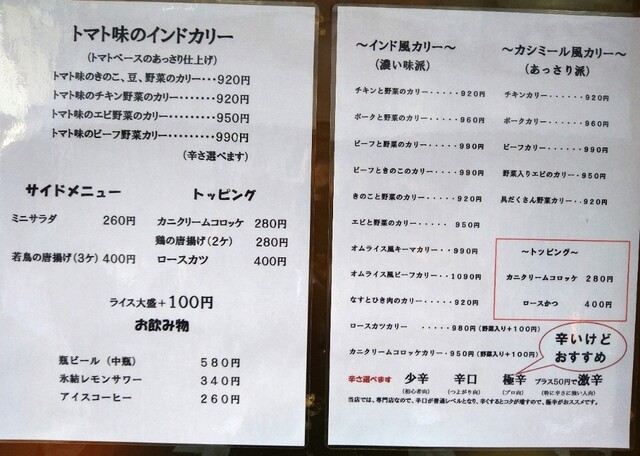 トマト味のインドカリー
(トマトベースのあっさり仕上げ)
トマト味のきのこ、豆、野菜のカリー・・・920円
トマト味のチキン野菜のカリー・・・・・・・・920円
トマト味のエビ野菜のカリー・・・・・・・・・950円
トマト味のビーフ野菜カリー・・・・・・・・・990円
(辛さ選べます)
サイドメニュー
ミニサラダ 260円
若鳥の唐揚げ(3ケ) 400円
トッピング
カニクリームコロッケ 280円
鶏の唐揚げ(2ケ) 280円
ロースカツ 400円
ライス大盛+100円
お飲み物
瓶ビール(中瓶) 580円
氷結レモンサワー 340円
アイスコーヒー 260円
～インド風カリー～
(濃い味派)
チキンと野菜のカリー・・・・・920円
ポークと野菜のカリー・・・・・960円
ビーフと野菜のカリー・・・・・990円
ビーフときのこのカリー・・・・990円
きのこと野菜のカリー・・・・・920円
エビと野菜のカリー・・・・・ 950円
オムライス風キーマカリー・・・990円
オムライス風ビーフカリー・・・1090円
なすとひき肉のカリー・・・・・920円
ロースカツカリー ・・・・・980円(野菜入り+100円)
カニクリームコロッケカリー・・950円(野菜入り+100円)
～カシミール風カリー～
(あっさり派)
チキンカリー・・・・・・920円
ポークカリー・・・・・・960円
ビーフカリー・・・・・・990円
野菜入りエビのカリー・・950円
具だくさん野菜カリー・・920円
～トッピング～
カニクリームコロッケ 280円
ロースかつ 400円
辛いけど
おすすめ
辛さ選べます 少辛 辛口 極辛 プラス50円で激辛
(初心者向) (つよがり向) (プロ向) (特に辛さに強い人向)
当店では、専門店なので、辛口が普通レベルとなり、辛くするとコクが増すので、極辛がおススメです。